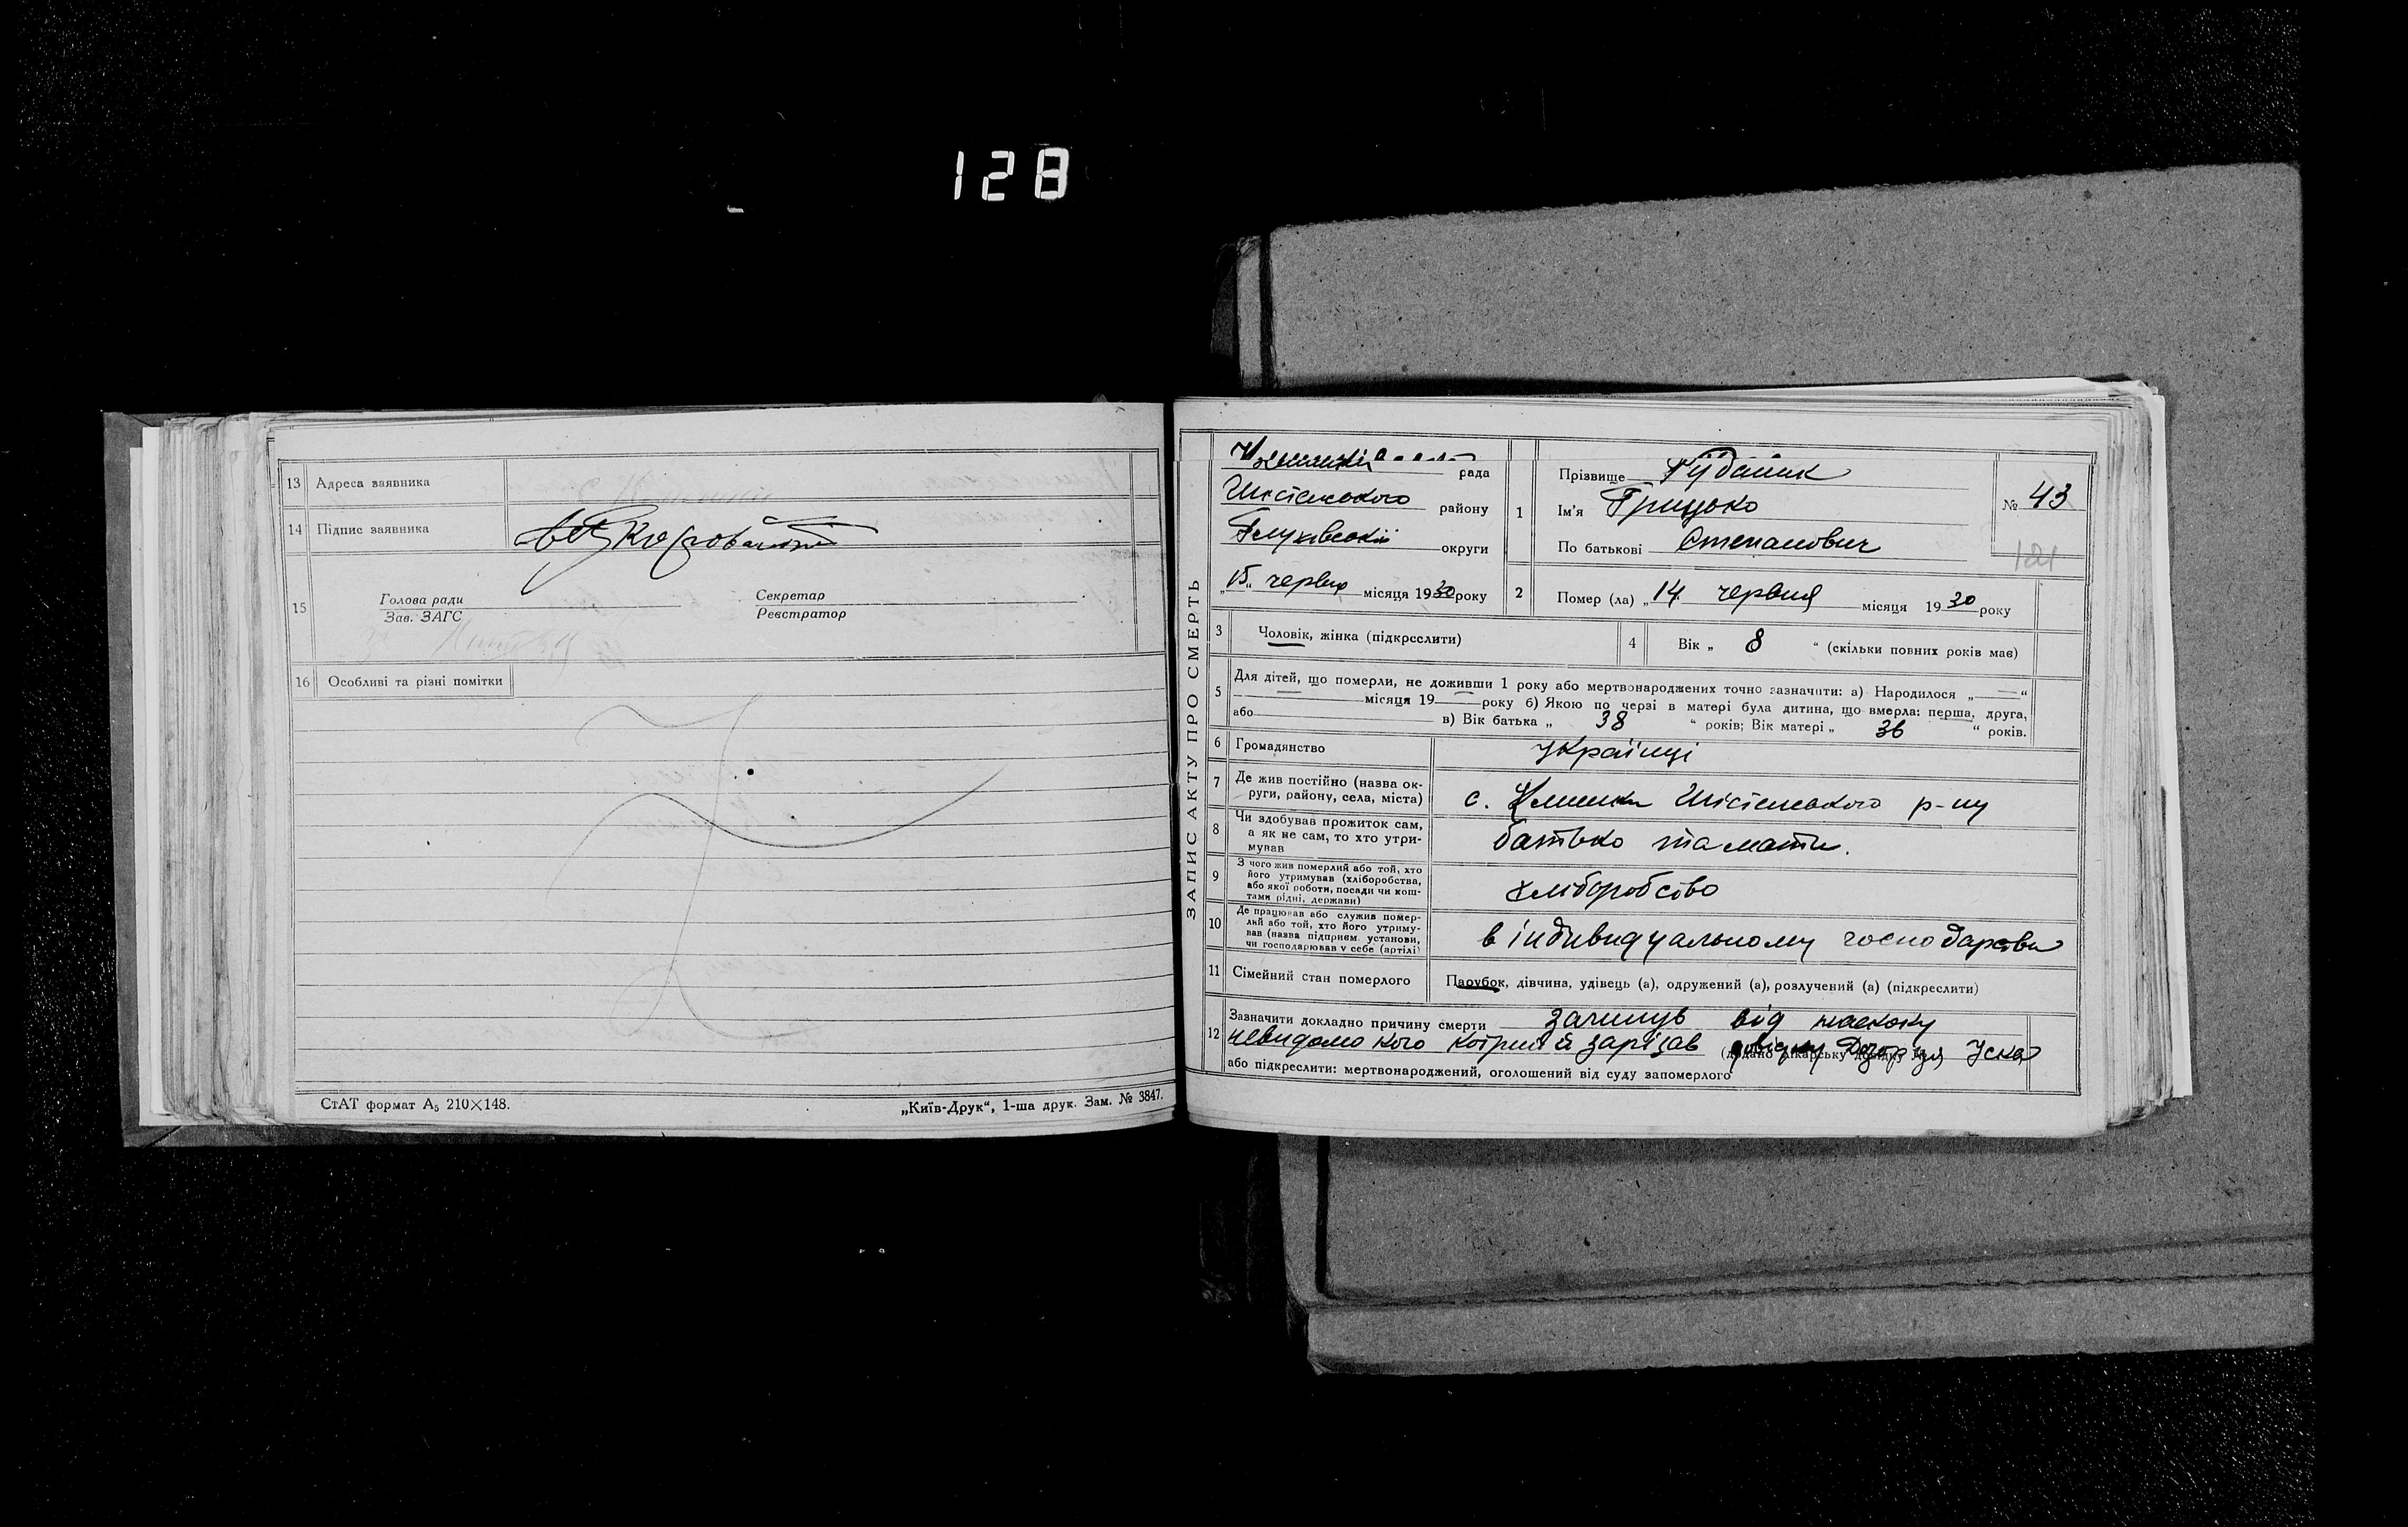 128
13 Адреса заявника
14 Підпис заявника
15 Голова ради
Зав. ЗАГС
Секретар
Реєстратор
16 Особливі та різні помітки
СтАТ формат А₅ 210×148.
„Київ-Друк“, 1-ша друк. Зам. № 3847.
ЗАПИС АКТУ ПРО СМЕРТЬ
рада
району
Глухівській округи
„15“ червня місяця 1930 року
1 Прізвище
Ім'я Грицько
По батькові Степанович
№ 43
121
2 Помер (ла) „14 червня місяця 1930 року
3 Чоловік, жінка (підкреслити)
4 Вік „ 8 “ (скільки повних років має)
5 Для дітей, що померли, не доживши 1 року або мертвонароджених точно зазначити: а) Народилося „ — “
— місяця 19 — року б) Якою по черзі в матері була дитина, що вмерла: перша, друга,
або в) Вік батька „ 38 “ років; Вік матері „ 36 “ років.
6 Громадянство українці
7 Де жив постійно (назва округи, району, села, міста) с. р-ну
8 Чи здобував прожиток сам, а як не сам, то хто утримував батько та мати.
9 З чого жив померлий або той, хто його утримував (хліборобства, або якої роботи, посади чи коштами рідні, держави) хліборобсво
10 Де працював або служив померлий або той, хто його утримував (назва підприєм. установи, чи господарював у себе (артілі) в індивидуальному господарсви
11 Сімейний стан померлого Парубок, дівчина, удівець (а), одружений (а), розлучений (а) (підкреслити)
12 Зазначити докладно причину смерти загинув від наскоку
невидомо кого котрий й зарізав (додано лікарську довідку
або підкреслити: мертвонароджений, оголошений від суду запомерлого